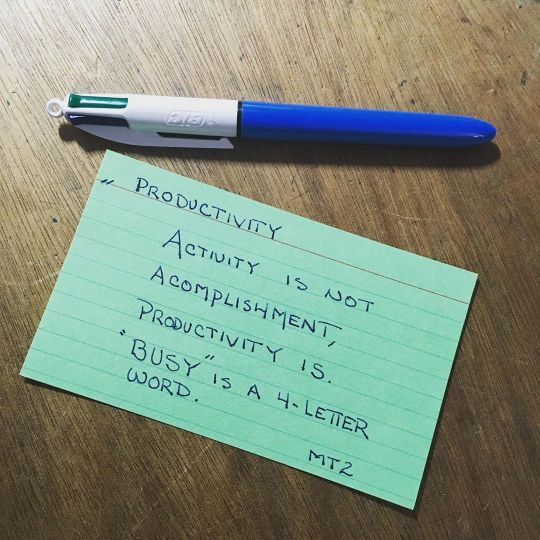 BIC
" PRODUCTIVITY
ACTIVITY IS NOT
ACOMPLISHMENT,
PRODUCTIVITY IS.
"BUSY" IS A 4-LETTER
WORD.
MT2